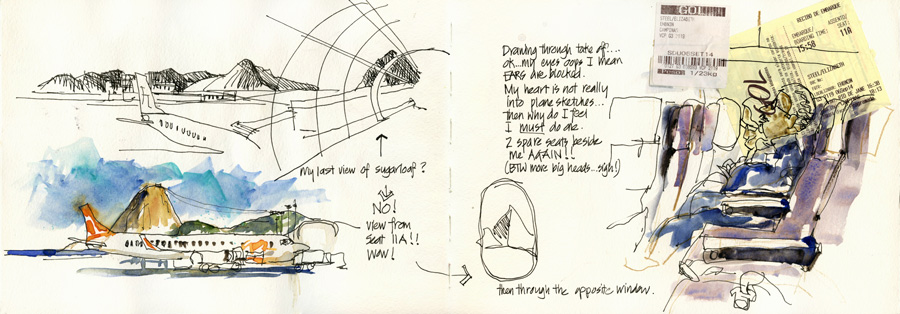 My last view of sugarloaf?
NO!
View from
Seat 11A!!
Wow!
Drawing through take off?...
OK...my eyes oops I mean
EARS are blocked.
My heart is not really
into plane sketches...
Then why do I feel
I must do one.
2 spare seats beside
me AGAIN!!!
(BTW more big heads...sigh!)
then through the opposite window.
GOL
STEEL/ELIZABETH
1/23KG
RECIBO DE EMBARQUE
EMBARQUE/
BOARDING TIME:
15:50
ASSENTO/
SEAT:
11A
STEEL/ELIZABETH